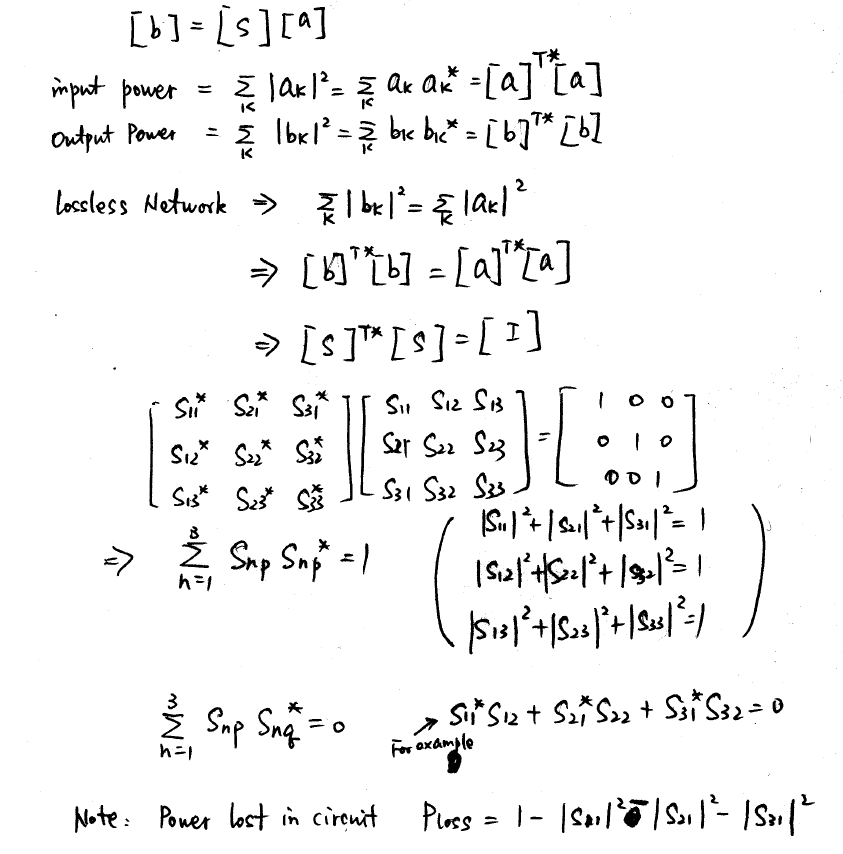 [b] = [S][a]
input power = Σ_K |a_K|² = Σ_K a_K a_K* = [a]^T* [a]
Output Power = Σ_K |b_K|² = Σ_K b_K b_K* = [b]^T* [b]
Lossless Network ⇒ Σ_K |b_K|² = Σ_K |a_K|²
⇒ [b]^T* [b] = [a]^T* [a]
⇒ [S]^T* [S] = [I]
[S11* S21* S31*] [S11 S12 S13] = [1 0 0]
[S12* S22* S32*] [S21 S22 S23] [0 1 0]
[S13* S23* S33*] [S31 S32 S33] [0 0 1]
⇒ Σ_{n=1}^{3} S_np S_np* = 1 ( |S11|² + |S21|² + |S31|² = 1
|S12|² + |S22|² + |S32|² = 1
|S13|² + |S23|² + |S33|² = 1 )
Σ_{n=1}^{3} S_np S_nq* = 0 → S11* S12 + S21* S22 + S31* S32 = 0
For example
Note: Power lost in circuit Ploss = 1 - |S11|² - |S21|² - |S31|²